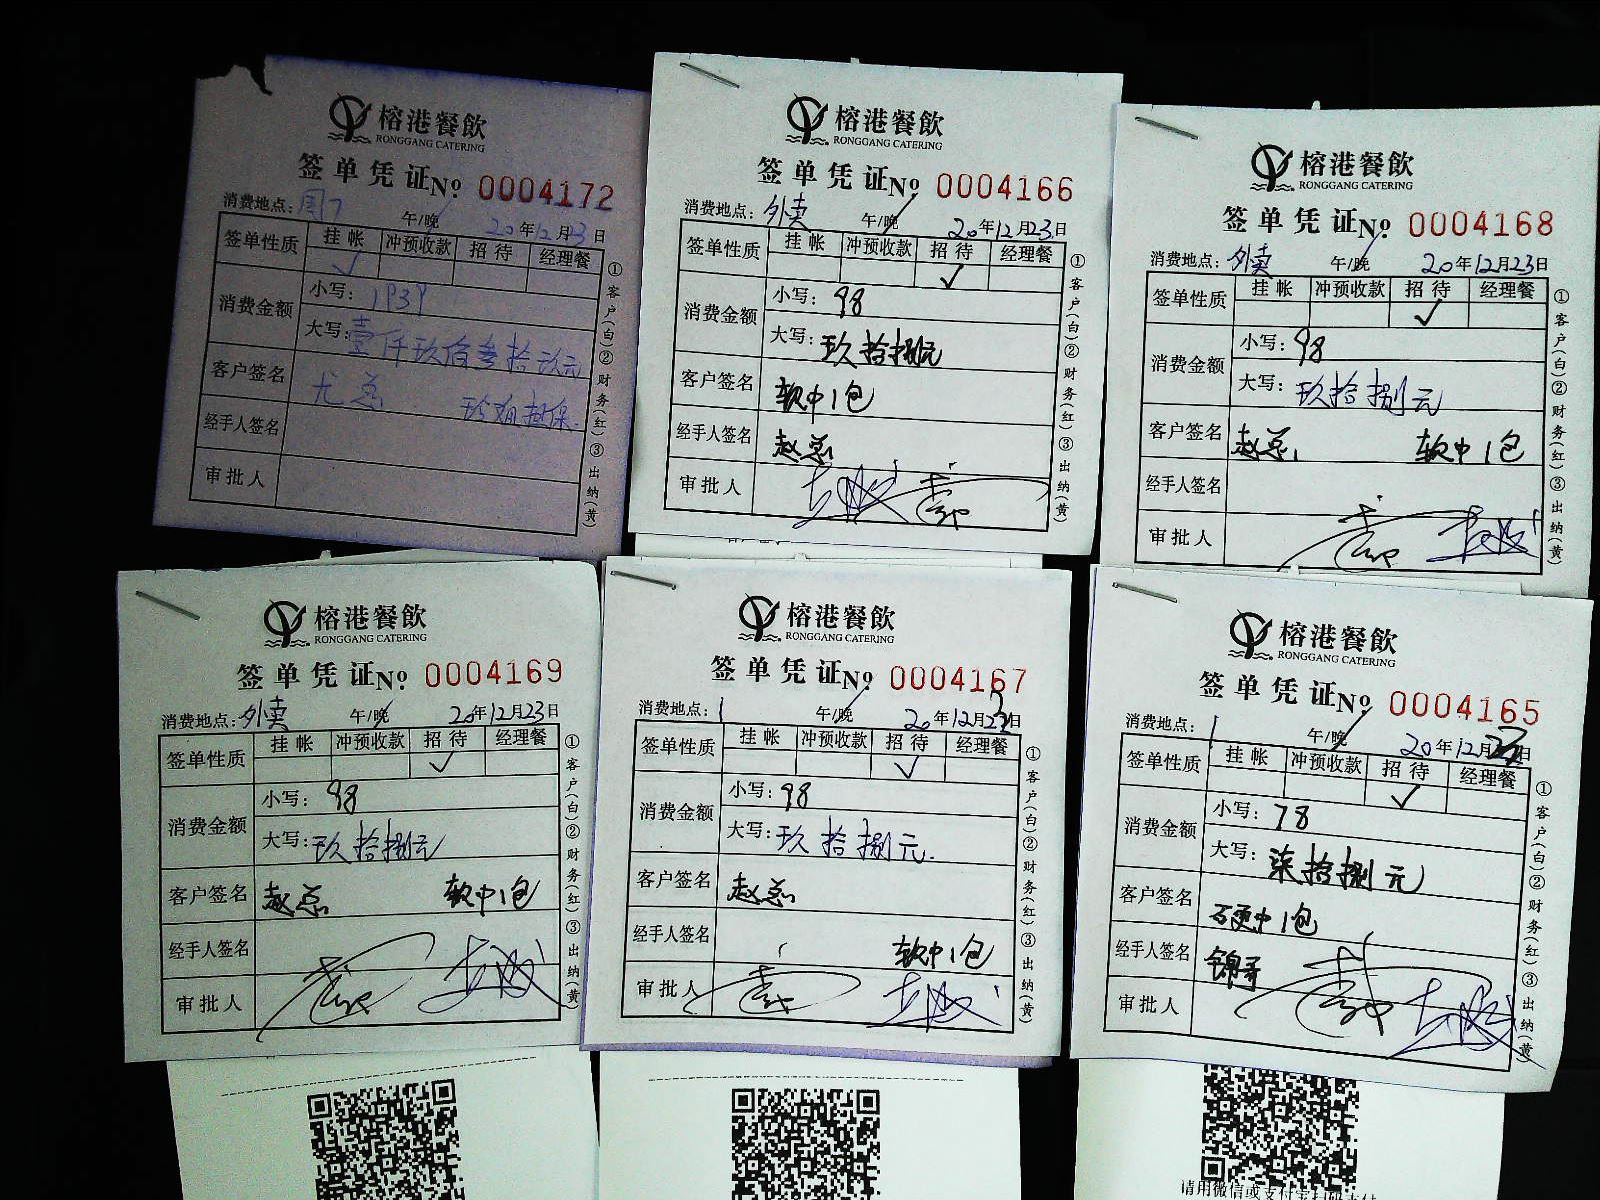 榕港餐飲
RONGGANG CATERING
签单凭证 No. 0004172
消费地点: 午/晚 20年12月23日
签单性质 挂帐 冲预收款 招待 经理餐
✓
消费金额 小写: 1939
大写: 壹仟玖佰叁拾玖元
客户签名 尤总
经手人签名
审批人
①客户(白)②财务(红)③出纳(黄)
榕港餐飲
RONGGANG CATERING
签单凭证 No. 0004166
消费地点: 外卖 午/晚 20年12月23日
签单性质 挂帐 冲预收款 招待 经理餐
✓
消费金额 小写: 98
大写: 玖拾捌元
客户签名 软中1包
经手人签名 赵总
审批人
①客户(白)②财务(红)③出纳(黄)
榕港餐飲
RONGGANG CATERING
签单凭证 No. 0004168
消费地点: 外卖 午/晚 20年12月23日
签单性质 挂帐 冲预收款 招待 经理餐
✓
消费金额 小写: 98
大写: 玖拾捌元
客户签名 赵总 软中1包
经手人签名
审批人
①客户(白)②财务(红)③出纳(黄)
榕港餐飲
RONGGANG CATERING
签单凭证 No. 0004169
消费地点: 外卖 午/晚 20年12月23日
签单性质 挂帐 冲预收款 招待 经理餐
✓
消费金额 小写: 98
大写: 玖拾捌元
客户签名 赵总 软中1包
经手人签名
审批人
①客户(白)②财务(红)③出纳(黄)
榕港餐飲
RONGGANG CATERING
签单凭证 No. 0004167
消费地点: 午/晚 20年12月23日
签单性质 挂帐 冲预收款 招待 经理餐
✓
消费金额 小写: 98
大写: 玖拾捌元.
客户签名 赵总
经手人签名 软中1包
审批人
①客户(白)②财务(红)③出纳(黄)
榕港餐飲
RONGGANG CATERING
签单凭证 No. 0004165
消费地点: 午/晚 20年12月23日
签单性质 挂帐 冲预收款 招待 经理餐
✓
消费金额 小写: 78
大写: 柒拾捌元
客户签名 硬中1包
经手人签名 锦哥
审批人
①客户(白)②财务(红)③出纳(黄)
请用微信或支付宝扫码支付